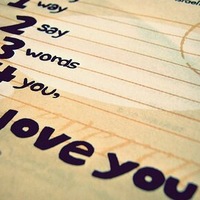 1 way
2 say
3 words
4 you,
love you